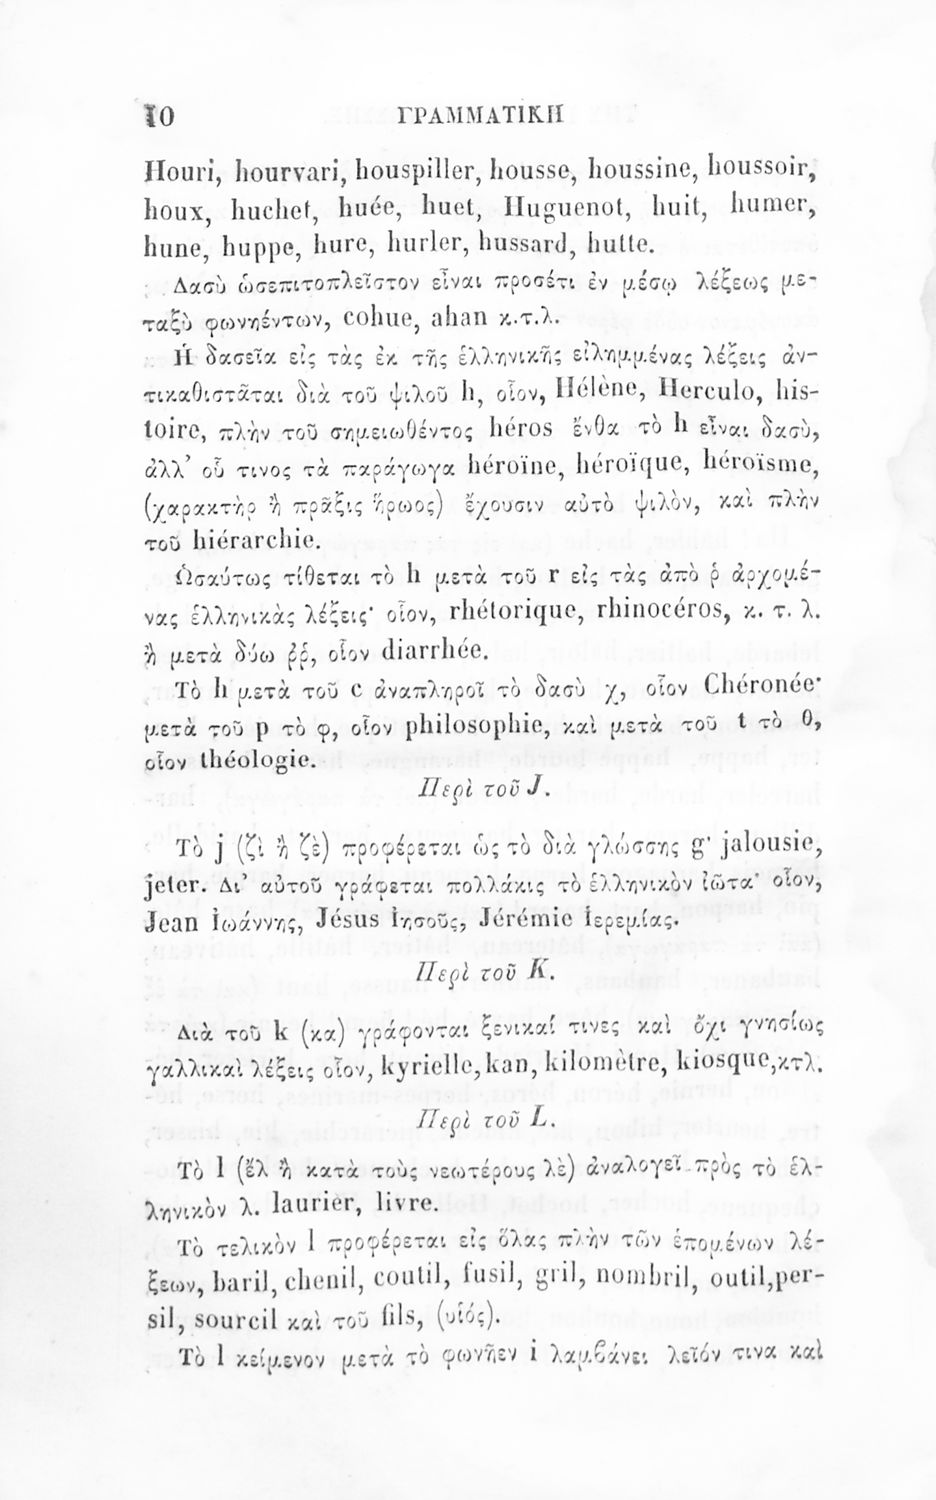 10 ΓΡΑΜΜΑΤΙΚΗ
Houri, hourvari, houspiller, housse, houssine, houssoir,
houx, huchet, huée, huet, Huguenot, huit, humer,
hune, huppe, hure, hurler, hussard, hutte.
Δασὺ ὡσεπιτοπλεῖστον εἶναι προσέτι ἐν μέσῳ λέξεως με-
ταξὺ φωνηέντων, cohue, ahan κ.τ.λ.
Ἡ δασεῖα εἰς τὰς ἐκ τῆς ἑλληνικῆς εἰλημμένας λέξεις ἀν-
τικαθιστᾶται διὰ τοῦ ψιλοῦ h, οἷον, Hélène, Herculo, his-
toire, πλὴν τοῦ σημειωθέντος héros ἔνθα τὸ h εἶναι δασὺ,
ἀλλ' οὗ τινος τὰ παράγωγα héroïne, héroïque, héroïsme,
(χαρακτὴρ ἢ πρᾶξις ἥρωος) ἔχουσιν αὐτὸ ψιλὸν, καὶ πλὴν
τοῦ hiérarchie.
Ὡσαύτως τίθεται τὸ h μετὰ τοῦ r εἰς τὰς ἀπὸ ῥ ἀρχομέ-
νας ἑλληνικὰς λέξεις· οἷον, rhétorique, rhinocéros, κ. τ. λ.
ἢ μετὰ δύω ῤῥ, οἷον diarrhée.
Τὸ h μετὰ τοῦ c ἀναπληροῖ τὸ δασὺ χ, οἷον Chéronée·
μετὰ τοῦ p τὸ φ, οἷον philosophie, καὶ μετὰ τοῦ t τὸ θ,
οἷον théologie.
Περὶ τοῦ J.
Τὸ j (ζὶ ἢ ζὲ) προφέρεται ὡς τὸ διὰ γλώσσης g· jalousie,
jeter. Δι' αὐτοῦ γράφεται πολλάκις τὸ ἑλληνικὸν ἰῶτα· οἷον,
Jean Ἰωάννης, Jésus Ἰησοῦς, Jérémie Ἱερεμίας.
Περὶ τοῦ K.
Διὰ τοῦ k (κα) γράφονται ξενικαί τινες καὶ ὄχι γνησίως
γαλλικαὶ λέξεις οἷον, kyrielle, kan, kilomètre, kiosque, κτλ.
Περὶ τοῦ L.
Τὸ l (ἒλ ἢ κατὰ τοὺς νεωτέρους λὲ) ἀναλογεῖ πρὸς τὸ ἑλ-
ληνικὸν λ. laurier, livre.
Τὸ τελικὸν l προφέρεται εἰς ὅλας πλὴν τῶν ἑπομένων λέ-
ξεων, baril, chenil, coutil, fusil, gril, nombril, outil, per-
sil, sourcil καὶ τοῦ fils, (υἱός).
Τὸ l κείμενον μετὰ τὸ φωνῆεν i λαμβάνει λεῖόν τινα καὶ